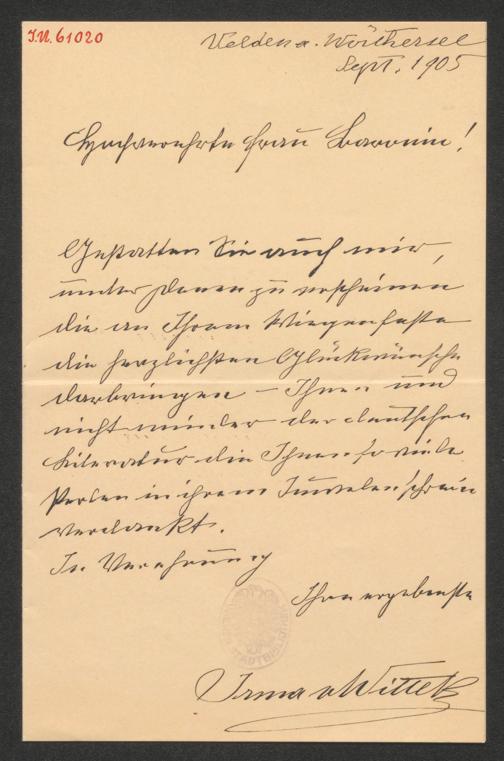 I.N. 61020
Velden a. Wörthersee
Sept. 1905
Hochverehrte Frau Baronin!
Gestatten Sie auch mir,
unter Jenen zu erscheinen
die an Ihrem Wiegenfeste
die herzlichsten Glückwünsche
darbringen – Ihnen und
nicht minder der deutschen
Literatur die Ihnen so viele
Perlen in ihrem Juwelenschrein
verdankt.
In Verehrung
Ihre ergebenste
Irma v Wittek